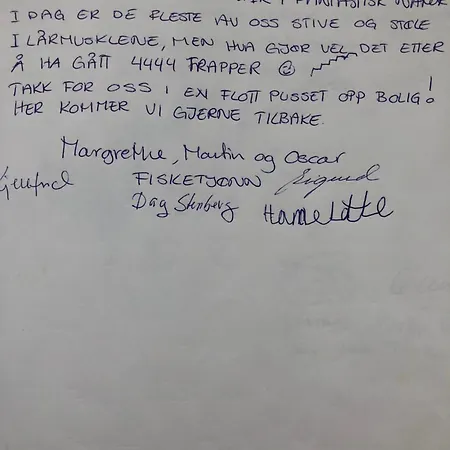 I FANTASTISK
I DAG ER DE FLESTE AV OSS STIVE OG STØLE
I LÅRMUSKLENE, MEN HVA GJØR VEL DET ETTER
Å HA GÅTT 4444 TRAPPER
TAKK FOR OSS I EN FLOTT PUSSET OPP BOLIG!
HER KOMMER VI GJERNE TILBAKE.
Margrethe, Martin og Oscar
FISKETJØNN Sigurd
Dag Stenberg Hanne Lotte